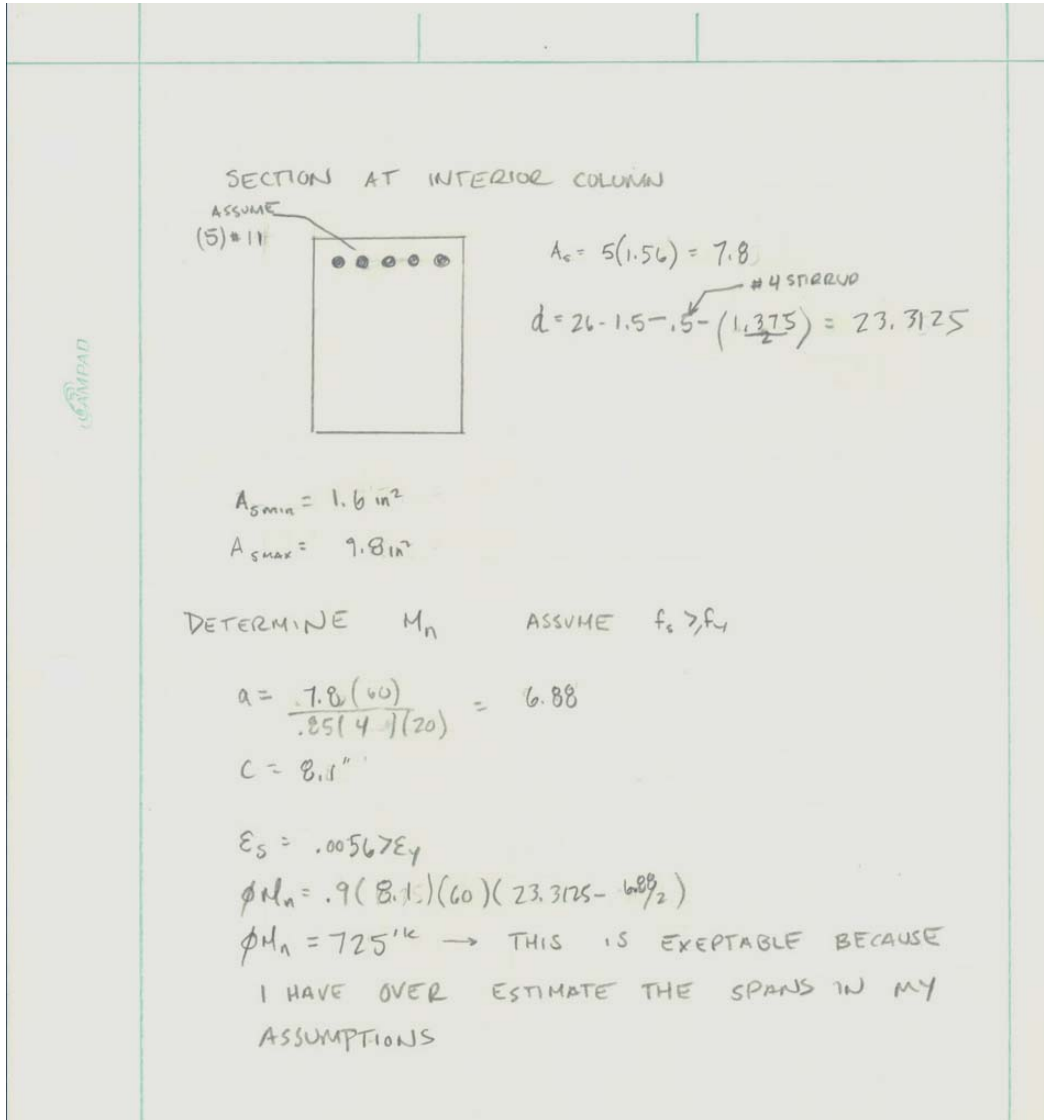 SECTION AT INTERIOR COLUMN
ASSUME
(5) #11
As = 5(1.56) = 7.8
#4 STIRRUP
d = 26 - 1.5 - .5 - (1.375/2) = 23.3125
CAMPAD
Asmin = 1.6 in²
Asmax = 9.8 in²
DETERMINE Mn ASSUME fs ≥ fy
a = 7.8(60) / .85(4)(20) = 6.88
C = 8.1"
εs = .0056 > εy
φMn = .9(8.1)(60)(23.3125 - 6.88/2)
φMn = 725'k → THIS IS EXEPTABLE BECAUSE
I HAVE OVER ESTIMATE THE SPANS IN MY
ASSUMPTIONS